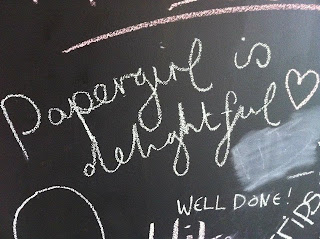 Papergirl is
delightful ♡
WELL DONE!
TIPS